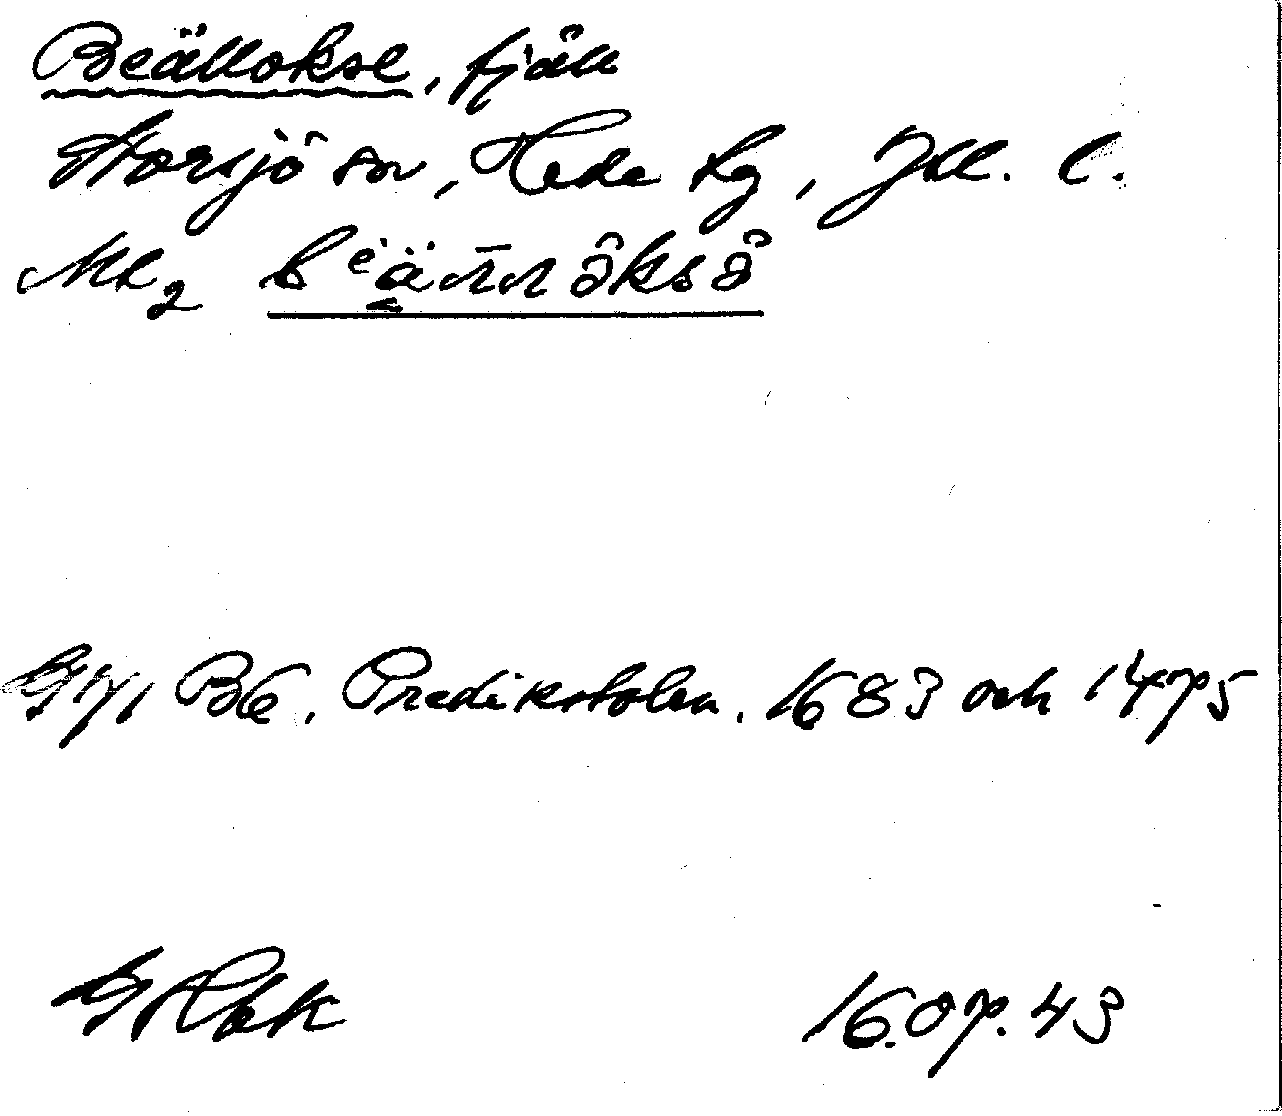 Beällokse, fjäll
Storsjö sn, Hede tg, Jtl. l.
b e̍äʌ̄ʌ åkså
B6. Predikstolen. 1683 och 1475
16.07.43